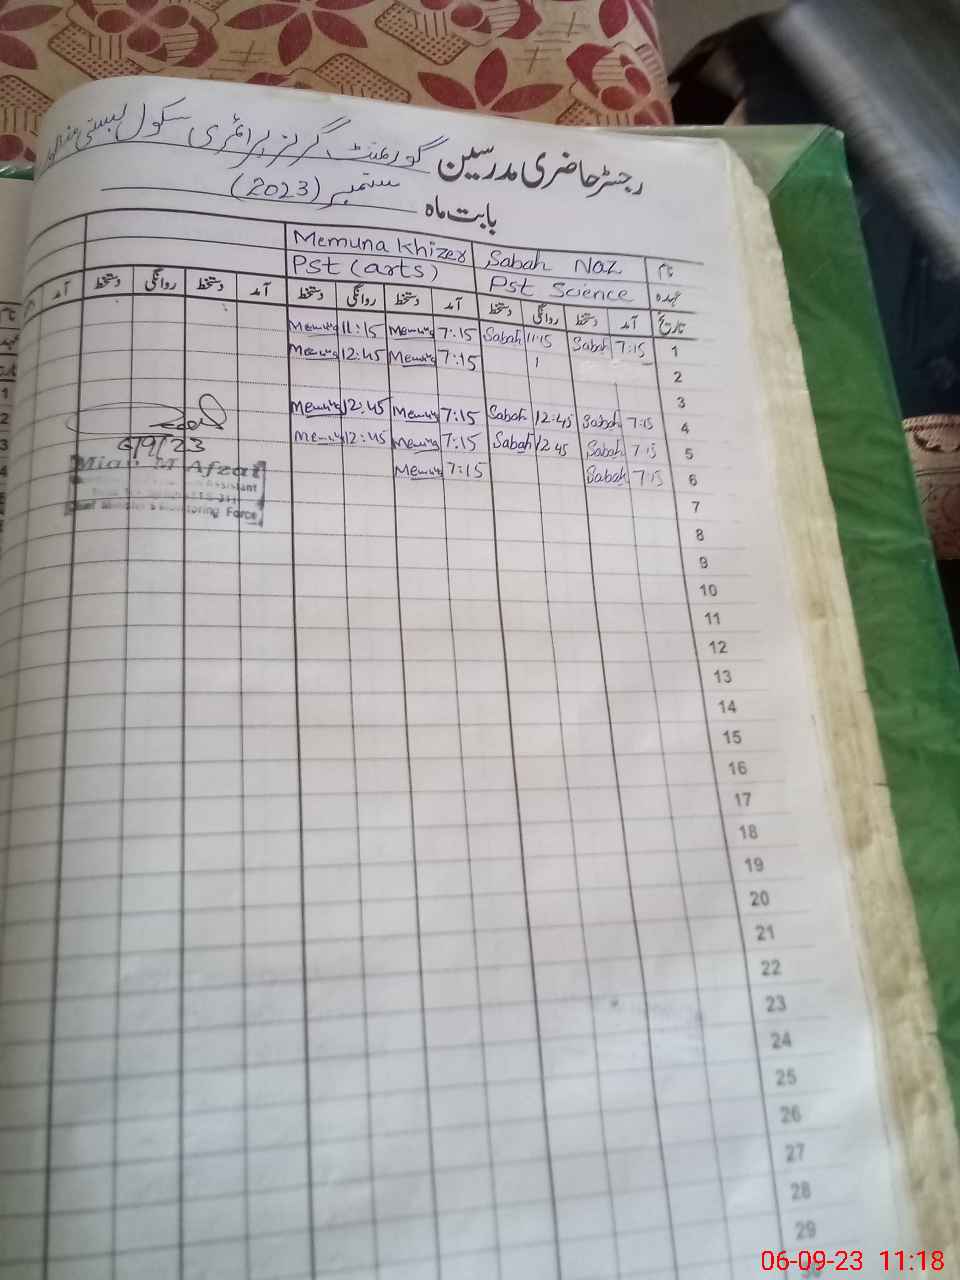 رجسٹر حاضری مدرسین گورنمنٹ گرلز پرائمری سکول بستی
بابت ماہ ستمبر (2023)
نام Sabah Naz Memuna Khizer
عہدہ Pst Science Pst (arts)
تاریخ آمد دستخط روانگی دستخط آمد دستخط روانگی دستخط آمد دستخط روانگی دستخط آمد
1 7:15 Sabah 11:15 Sabah 7:15 Memuna 11:15 Memuna
2 7:15 Memuna 12:45 Memuna
3
4 7:15 Sabah 12:45 Sabah 7:15 Memuna 12:45 Memuna
5 7:15 Sabah 12:45 Sabah 7:15 Memuna 12:45 Memuna
6 7:15 Sabah 7:15 Memuna
6/9/23
Mian M Afzal
Assistant
Chief Minister's Monitoring Force
7
8
9
10
11
12
13
14
15
16
17
18
19
20
21
22
23
24
25
26
27
28
29
06-09-23 11:18